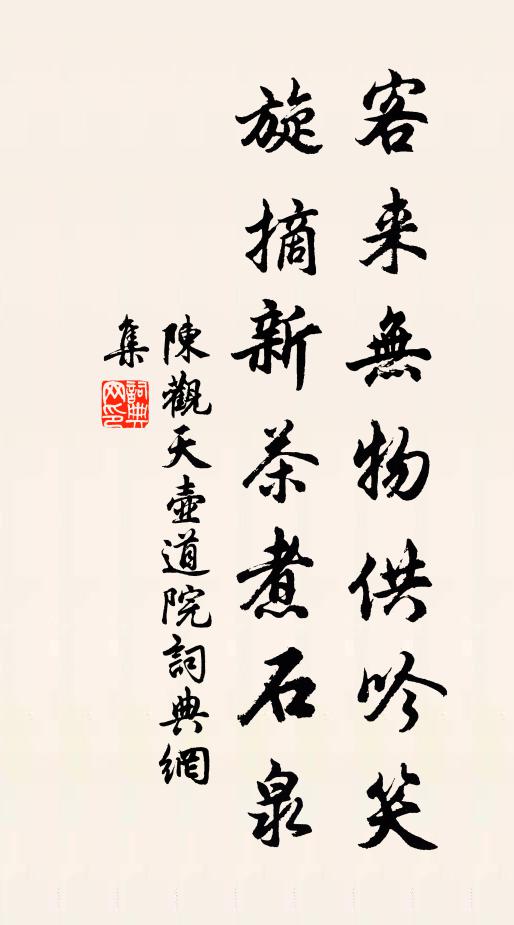 客来無物供吟笑
旋摘新茶煮石泉
陳觀天壺道院詞典網
集
詞典網印